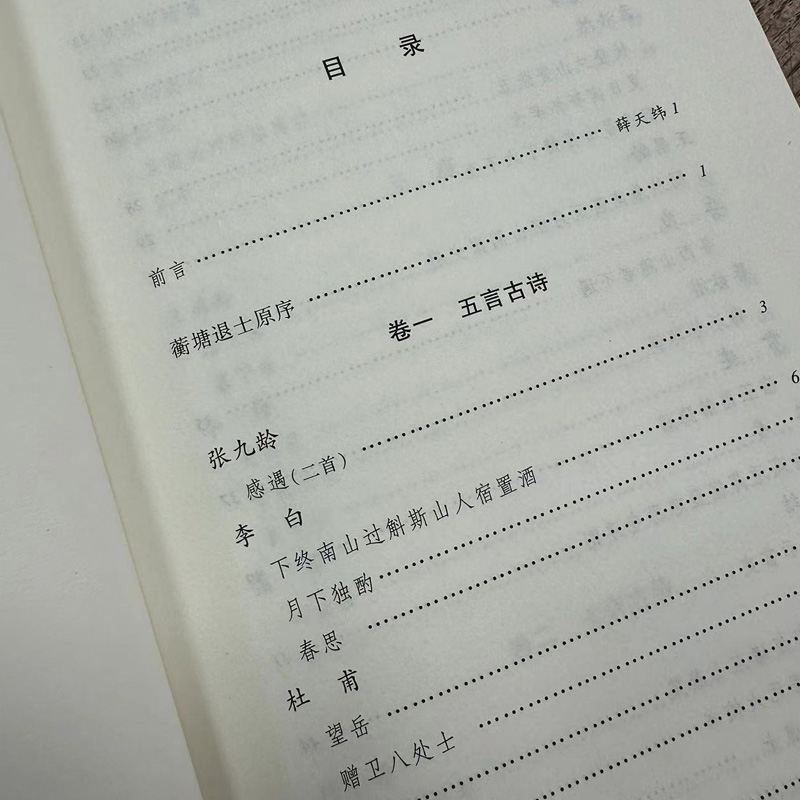 目 录
前言 …… 薛天纬 1
蘅塘退士原序 …… 1
卷一 五言古诗
张九龄
感遇(二首) …… 3
李 白
下终南山过斛斯山人宿置酒 …… 6
月下独酌 ……
春思 ……
杜 甫
望岳 ……
赠卫八处士 ……